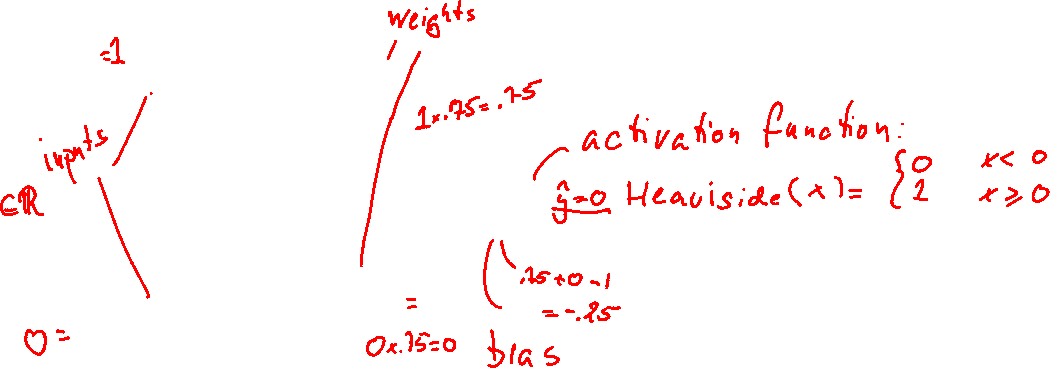 weights
=1
1x.75=.75
activation function:
inputs
∈ℝ
ŷ=0 Heaviside(x)= { 0 x<0
1 x≥0
.75+0-1
=-.25
=
0=
0x.75=0
bias